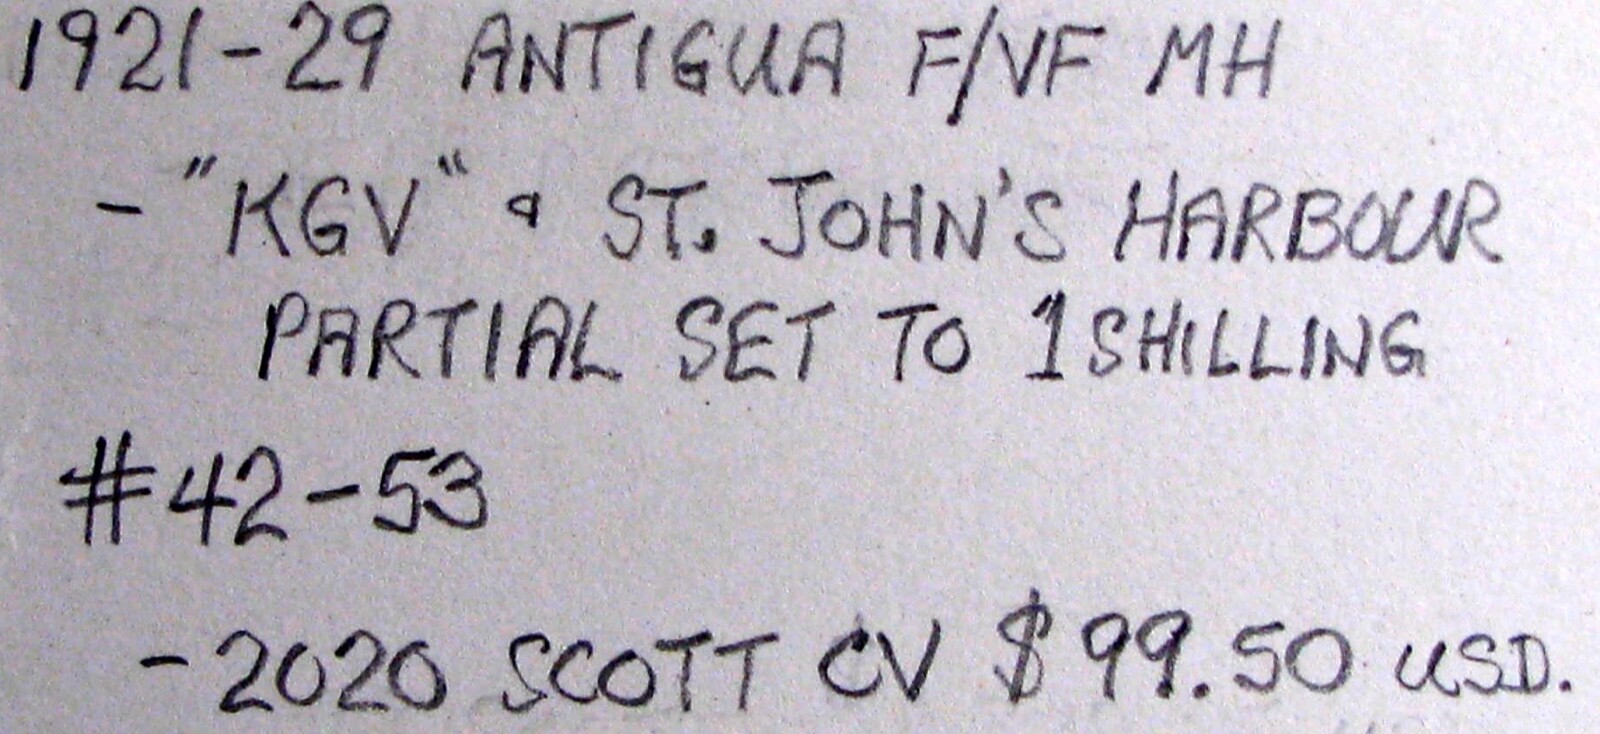 1921-29 ANTIGUA F/VF MH
- "KGV" & ST. JOHN'S HARBOUR
PARTIAL SET TO 1 SHILLING
#42-53
- 2020 SCOTT CV $99.50 USD.